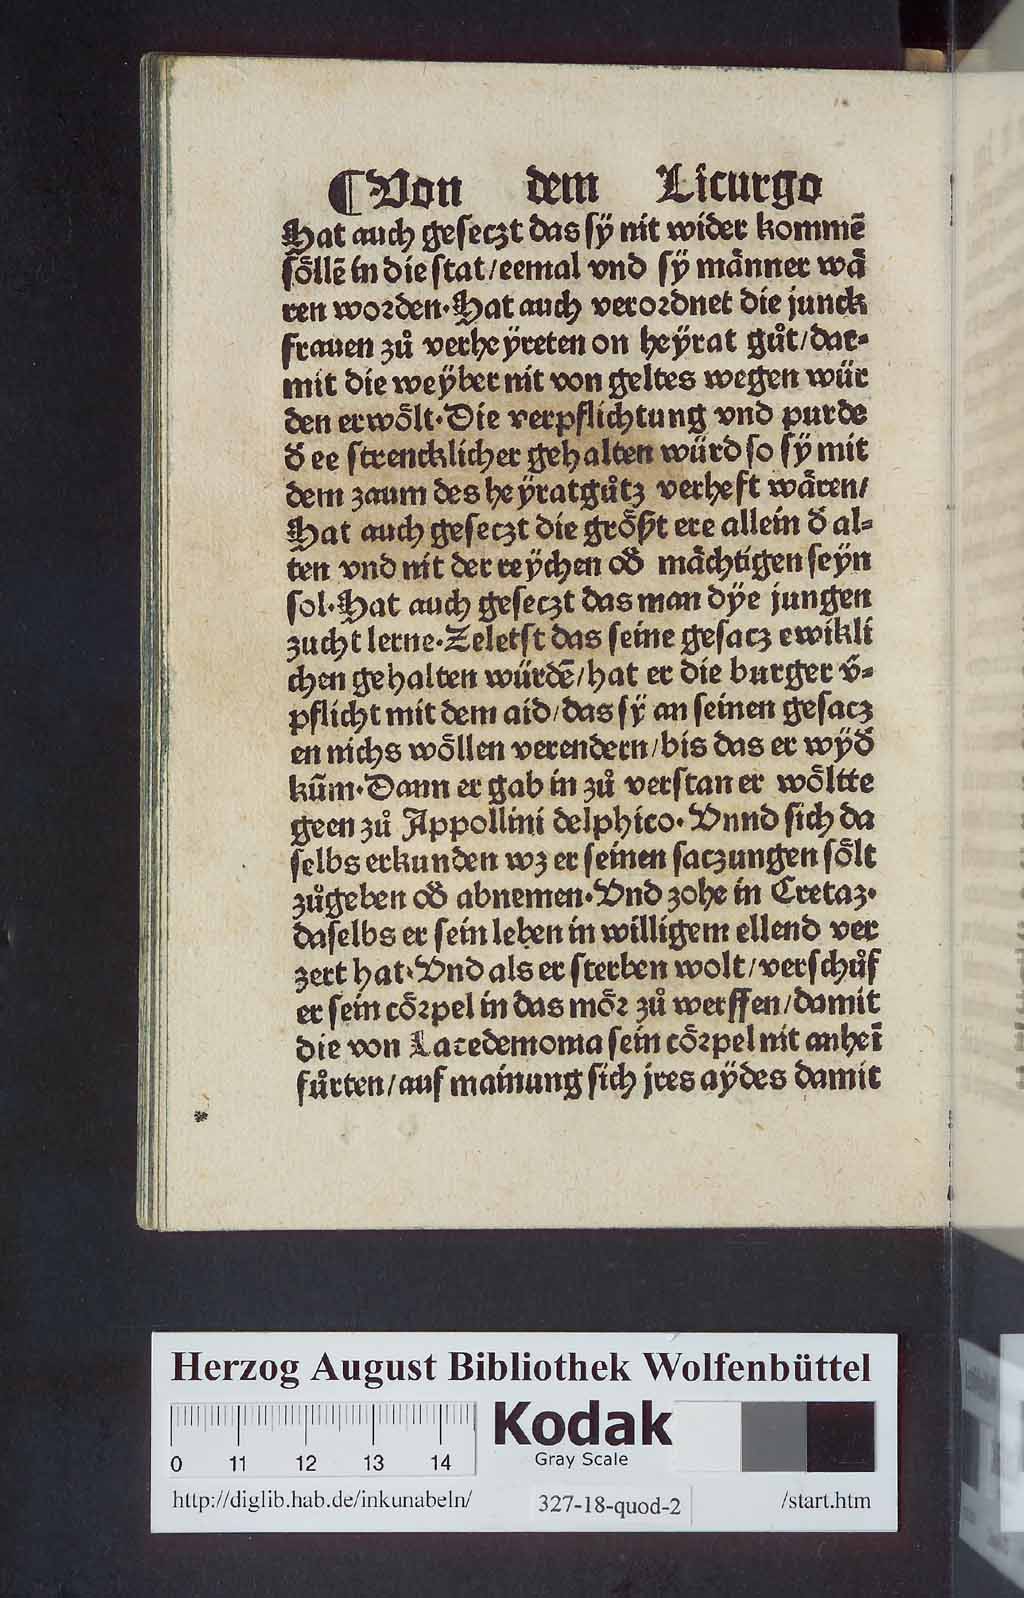 ¶ Von dem Licurgo
Hat auch geseczt das sÿ nit wider kommē
söllē in die stat/eemal vnd sÿ männer wä
ren worden·Hat auch verordnet die junck
frauen zů verheÿreten on heÿrat gůt/dar⸗
mit die weÿber nit von geltes wegen wür
den erwölt·Die verpflichtung vnd purde
d̕ ee strencklicher gehalten würd so sÿ mit
dem zaum des heÿratgůtz verheft wären/
Hat auch geseczt die größt ere allein d̕ al⸗
ten vnd nit der reÿchen od̕ mächtigen seÿn
sol·Hat auch geseczt das man dÿe jungen
zucht lerne·Zeletst das seine gesacz ewikli
chen gehalten würdē/hat er die burger v̕⸗
pflicht mit dem aid/das sÿ an seinen gesacz
en nichs wöllen verendern/bis das er wÿd̕
kūm·Dann er gab in zů verstan er wöltte
geen zů Appollini delphico·Vnnd sich da
selbs erkunden wz er seinen saczungen sölt
zůgeben od̕ abnemen·Vnd zohe in Cretaz·
daselbs er sein leben in willigem ellend ver
zert hat·Vnd als er sterben wolt/verschůf
er sein cörpel in das mör zů werffen/damit
die von Lacedemonia sein cörpel nit anheī
fůrten/auf mainung sich jres aÿdes damit
Herzog August Bibliothek Wolfenbüttel
0 11 12 13 14
Kodak
Gray Scale
http://diglib.hab.de/inkunabeln/ 327-18-quod-2 /start.htm